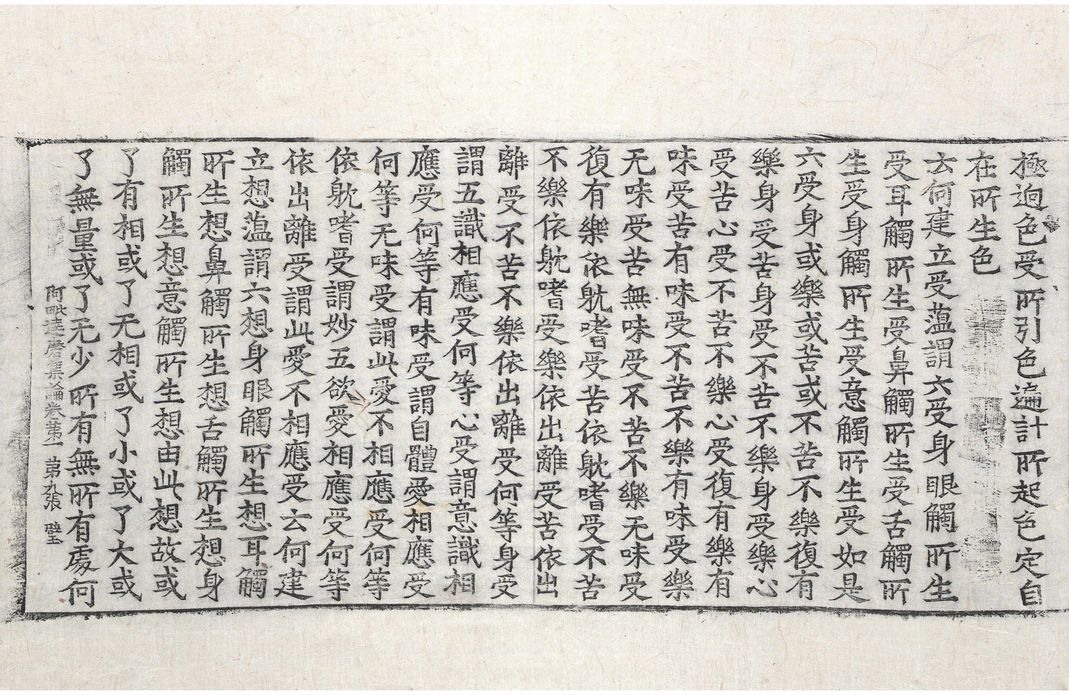 極迥色受所引色遍計所起色定自
在所生色
云何建立受蕰謂六受身眼觸所生
受耳觸所生受鼻觸所生受舌觸所
生受身觸所生受意觸所生受如是
六受身或樂或苦或不苦不樂復有
樂身受苦身受不苦不樂身受樂心
受苦心受不苦不樂心受復有樂有
味受苦有味受不苦不樂有味受樂
无味受苦無味受不苦不樂无味受
復有樂依躭嗜受苦依躭嗜受不苦
不樂依躭嗜受樂依出離受苦依出
離受不苦不樂依出離受何等身受
謂五識相應受何等心受謂意識相
應受何等有味受謂自體愛相應受
何等无味受謂此愛不相應受何等
依躭嗜受謂妙五欲愛相應受何等
依出離受謂此愛不相應受云何建
立想蕰謂六想身眼觸所生想耳觸
所生想鼻觸所生想舌觸所生想身
觸所生想意觸所生想由此想故或
了有相或了无相或了小或了大或
了無量或了无少所有無所有處何
阿毗達磨集論卷第一 第九張 璧